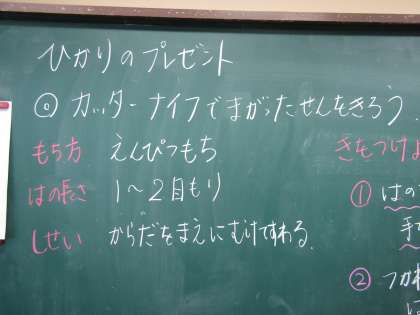 ひかりのプレゼント
◎ カッターナイフでまがったせんをきろう。
もち方 えんぴつもち
はの長さ 1〜2目もり
しせい からだをまえにむけてすわる。
きをつけよ
① はの
手
② つかわ